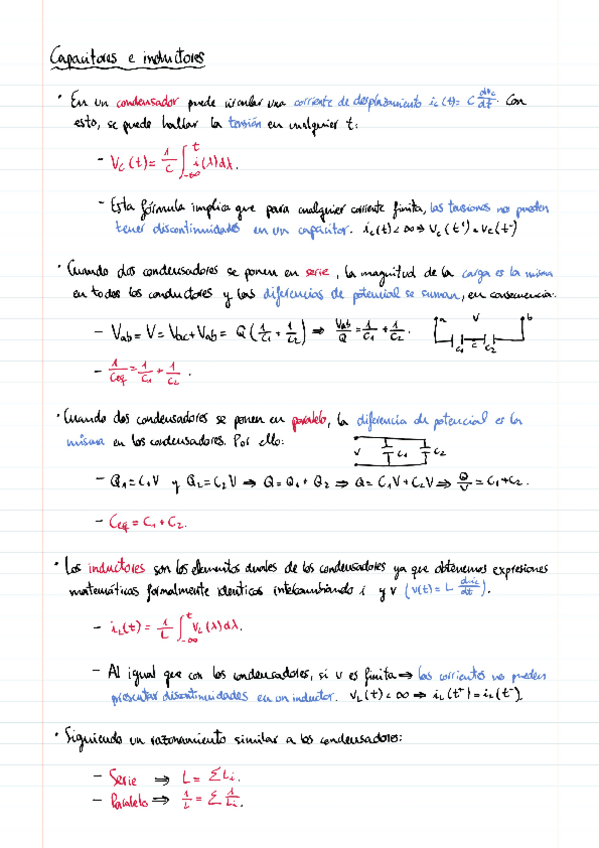 Capacitores e inductores
· En un condensador puede circular una corriente de desplazamiento ic(t)= C dvc/dt. Con
esto, se puede hallar la tensión en cualquier t:
- Vc(t)= 1/C ∫_{-∞}^{t} i(λ)dλ.
- Esta fórmula implica que para cualquier corriente finita, las tensiones no pueden
tener discontinuidades en un capacitor. ic(t)<∞ ⇒ Vc(t⁺)=Vc(t⁻)
· Cuando dos condensadores se ponen en serie, la magnitud de la carga es la misma
en todos los conductores y las diferencias de potencial se suman, en consecuencia:
- Vab = V = Vac + Vab = Q(1/C1 + 1/C2) ⇒ Vab/Q = 1/C1 + 1/C2.
a V b
C1 C C2
- 1/Ceq = 1/C1 + 1/C2.
· Cuando dos condensadores se ponen en paralelo, la diferencia de potencial es la
misma en los condensadores. Por ello:
V C1 C2
- Q1=C1V y Q2=C2V ⇒ Q=Q1+Q2 ⇒ Q=C1V+C2V ⇒ Q/V = C1+C2.
- Ceq = C1 + C2.
· Los inductores son los elementos duales de los condensadores ya que obtenemos expresiones
matemáticas formalmente identicas intercambiando i y v (v(t)= L diL/dt).
- iL(t) = 1/L ∫_{-∞}^{t} VL(λ)dλ.
- Al igual que con los condensadores, si v es finita ⇒ las corrientes no pueden
presentar discontinuidades en un inductor. VL(t)<∞ ⇒ iL(t⁺)=iL(t⁻)
· Siguiendo un razonamiento similar a los condensadores:
- Serie ⇒ L = ΣLi.
- Paralelo ⇒ 1/L = Σ 1/Li.